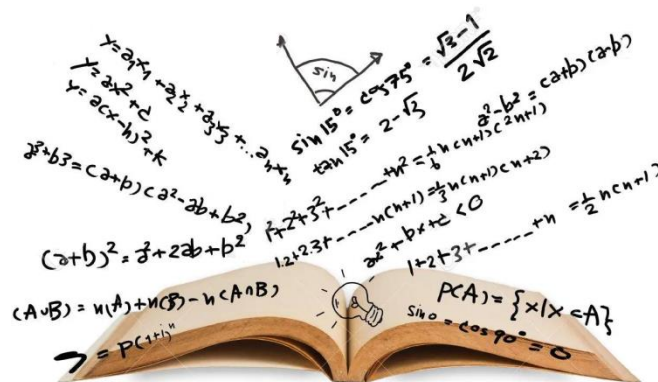 y = a₁x₁ + a₂x₂ + a₃x₃ + ... aₙxₙ
y = ax² + c
y = a(x-h)² + k
a³+b3 = (a+b)(a²-ab+b²)
(a+b)² = a²+2ab+b²
(A∪B) = n(A)+n(B)-n(A∩B)
= P(1+i)ⁿ
sin
sin15° = cos75° = √3-1 / 2√2
tan15° = 2-√3
a²-b² = (a+b)(a-b)
1²+2²+3²+------+n² = 1/6 n(n+1)(2n+1)
1.2+2.3+------n(n+1) = 1/3 n(n+1)(n+2)
ax²+bx+c<0
1+2+3+------+n = 1/2 n(n+1)
P(A) = {x|x⊂A}
sin0 = cos90° = 0